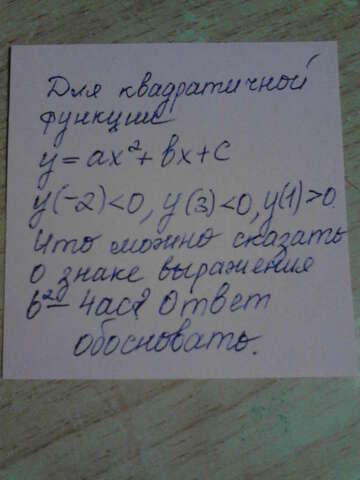 Для квадратичной
функции
y = ax² + bx + c
y(-2)<0, y(3)<0, y(1)>0.
Что можно сказать
о знаке выражения
b² - 4ac? Ответ
обосновать.